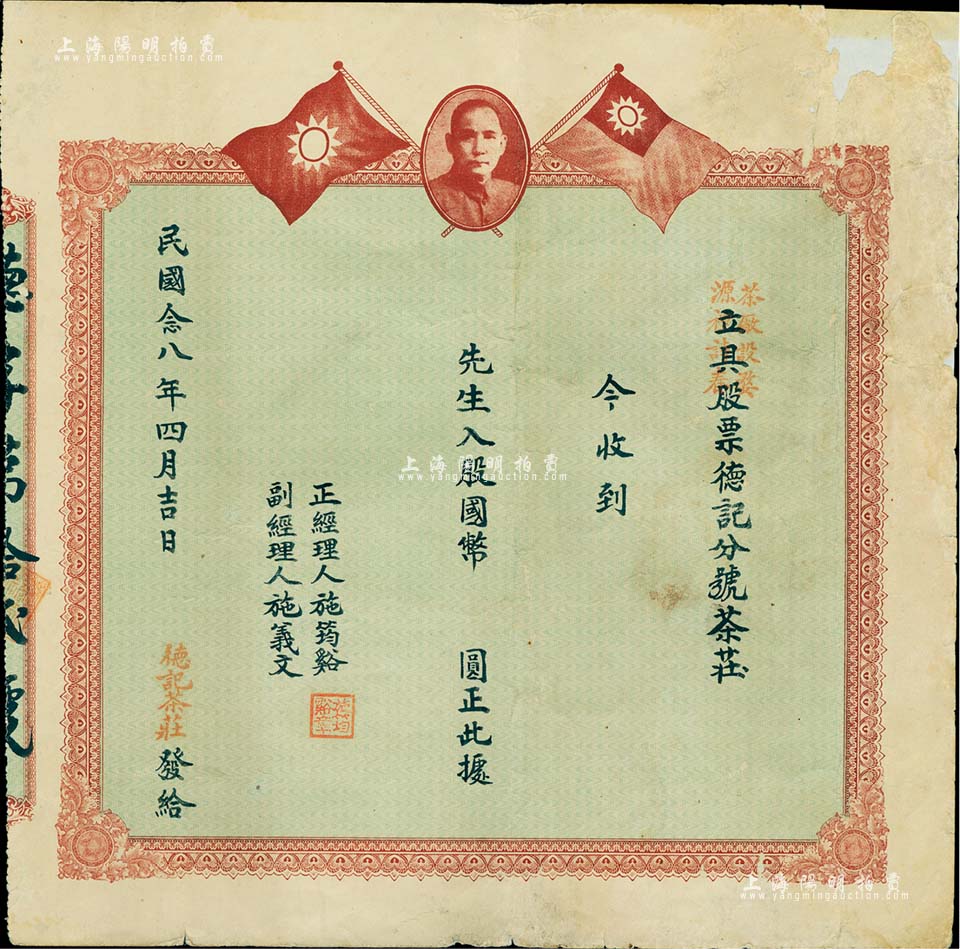 上海陽明拍賣
www.yangmingauction.com
茶廠設婺
源
立具股票德記分號茶莊
今收到
先生入股國幣 圓正此據
正經理人施筠谿
副經理人施義文
民國念八年四月吉日
德記茶莊
發給
德字第拾弍號
上海陽明拍賣
www.yangmingauction.com
上海陽明拍賣
www.yangmingauction.com